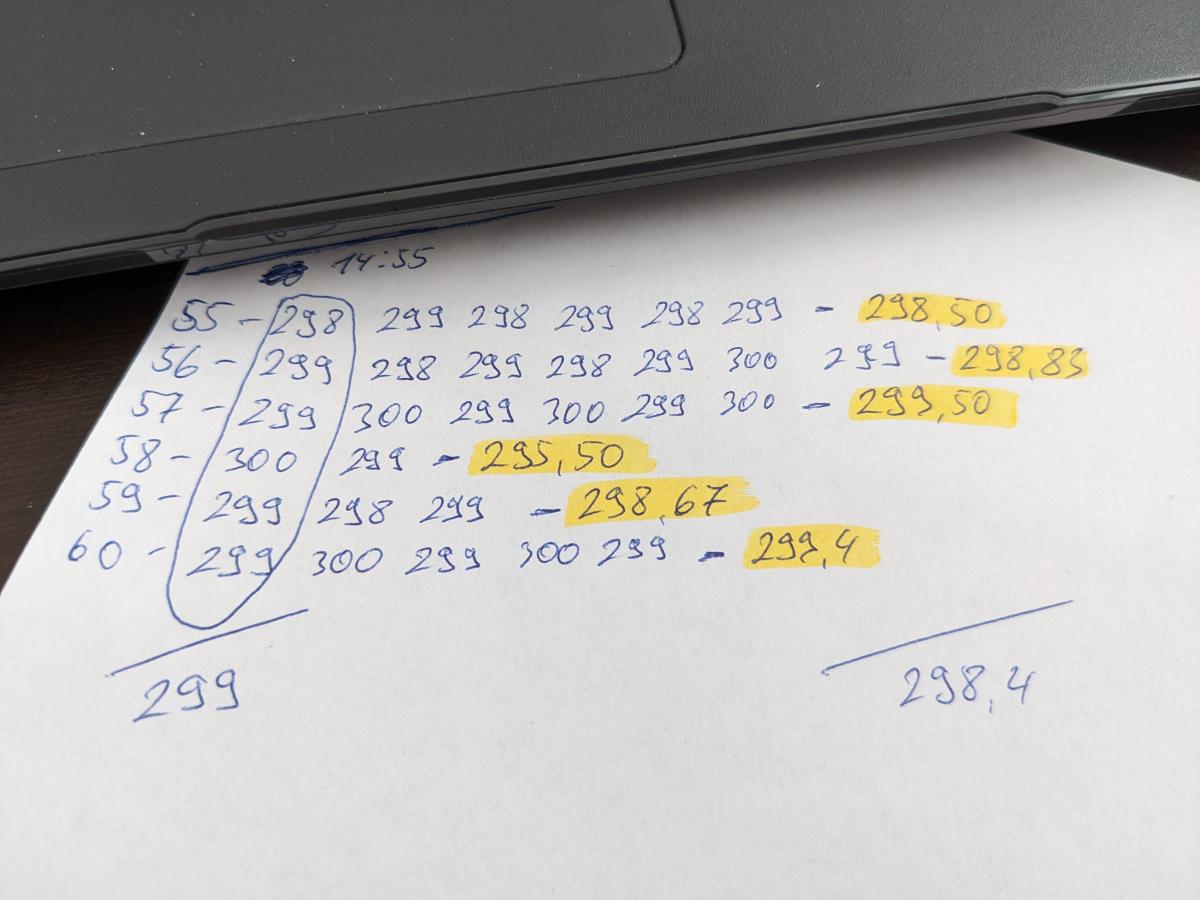 14:55
55 - 298 299 298 299 298 299 - 298,50
56 - 299 298 299 298 299 300 299 - 298,83
57 - 299 300 299 300 299 300 - 299,50
58 - 300 299 - 295,50
59 - 299 298 299 - 298,67
60 - 299 300 299 300 299 - 299,4
299
298,4